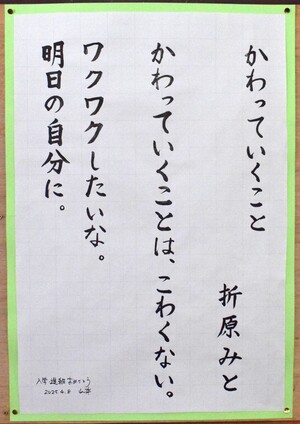 かわっていくこと
折原みと
かわっていくことは、こわくない。
ワクワクしたいな。
明日の自分に。
入学進級おめでとう
2025.4.8